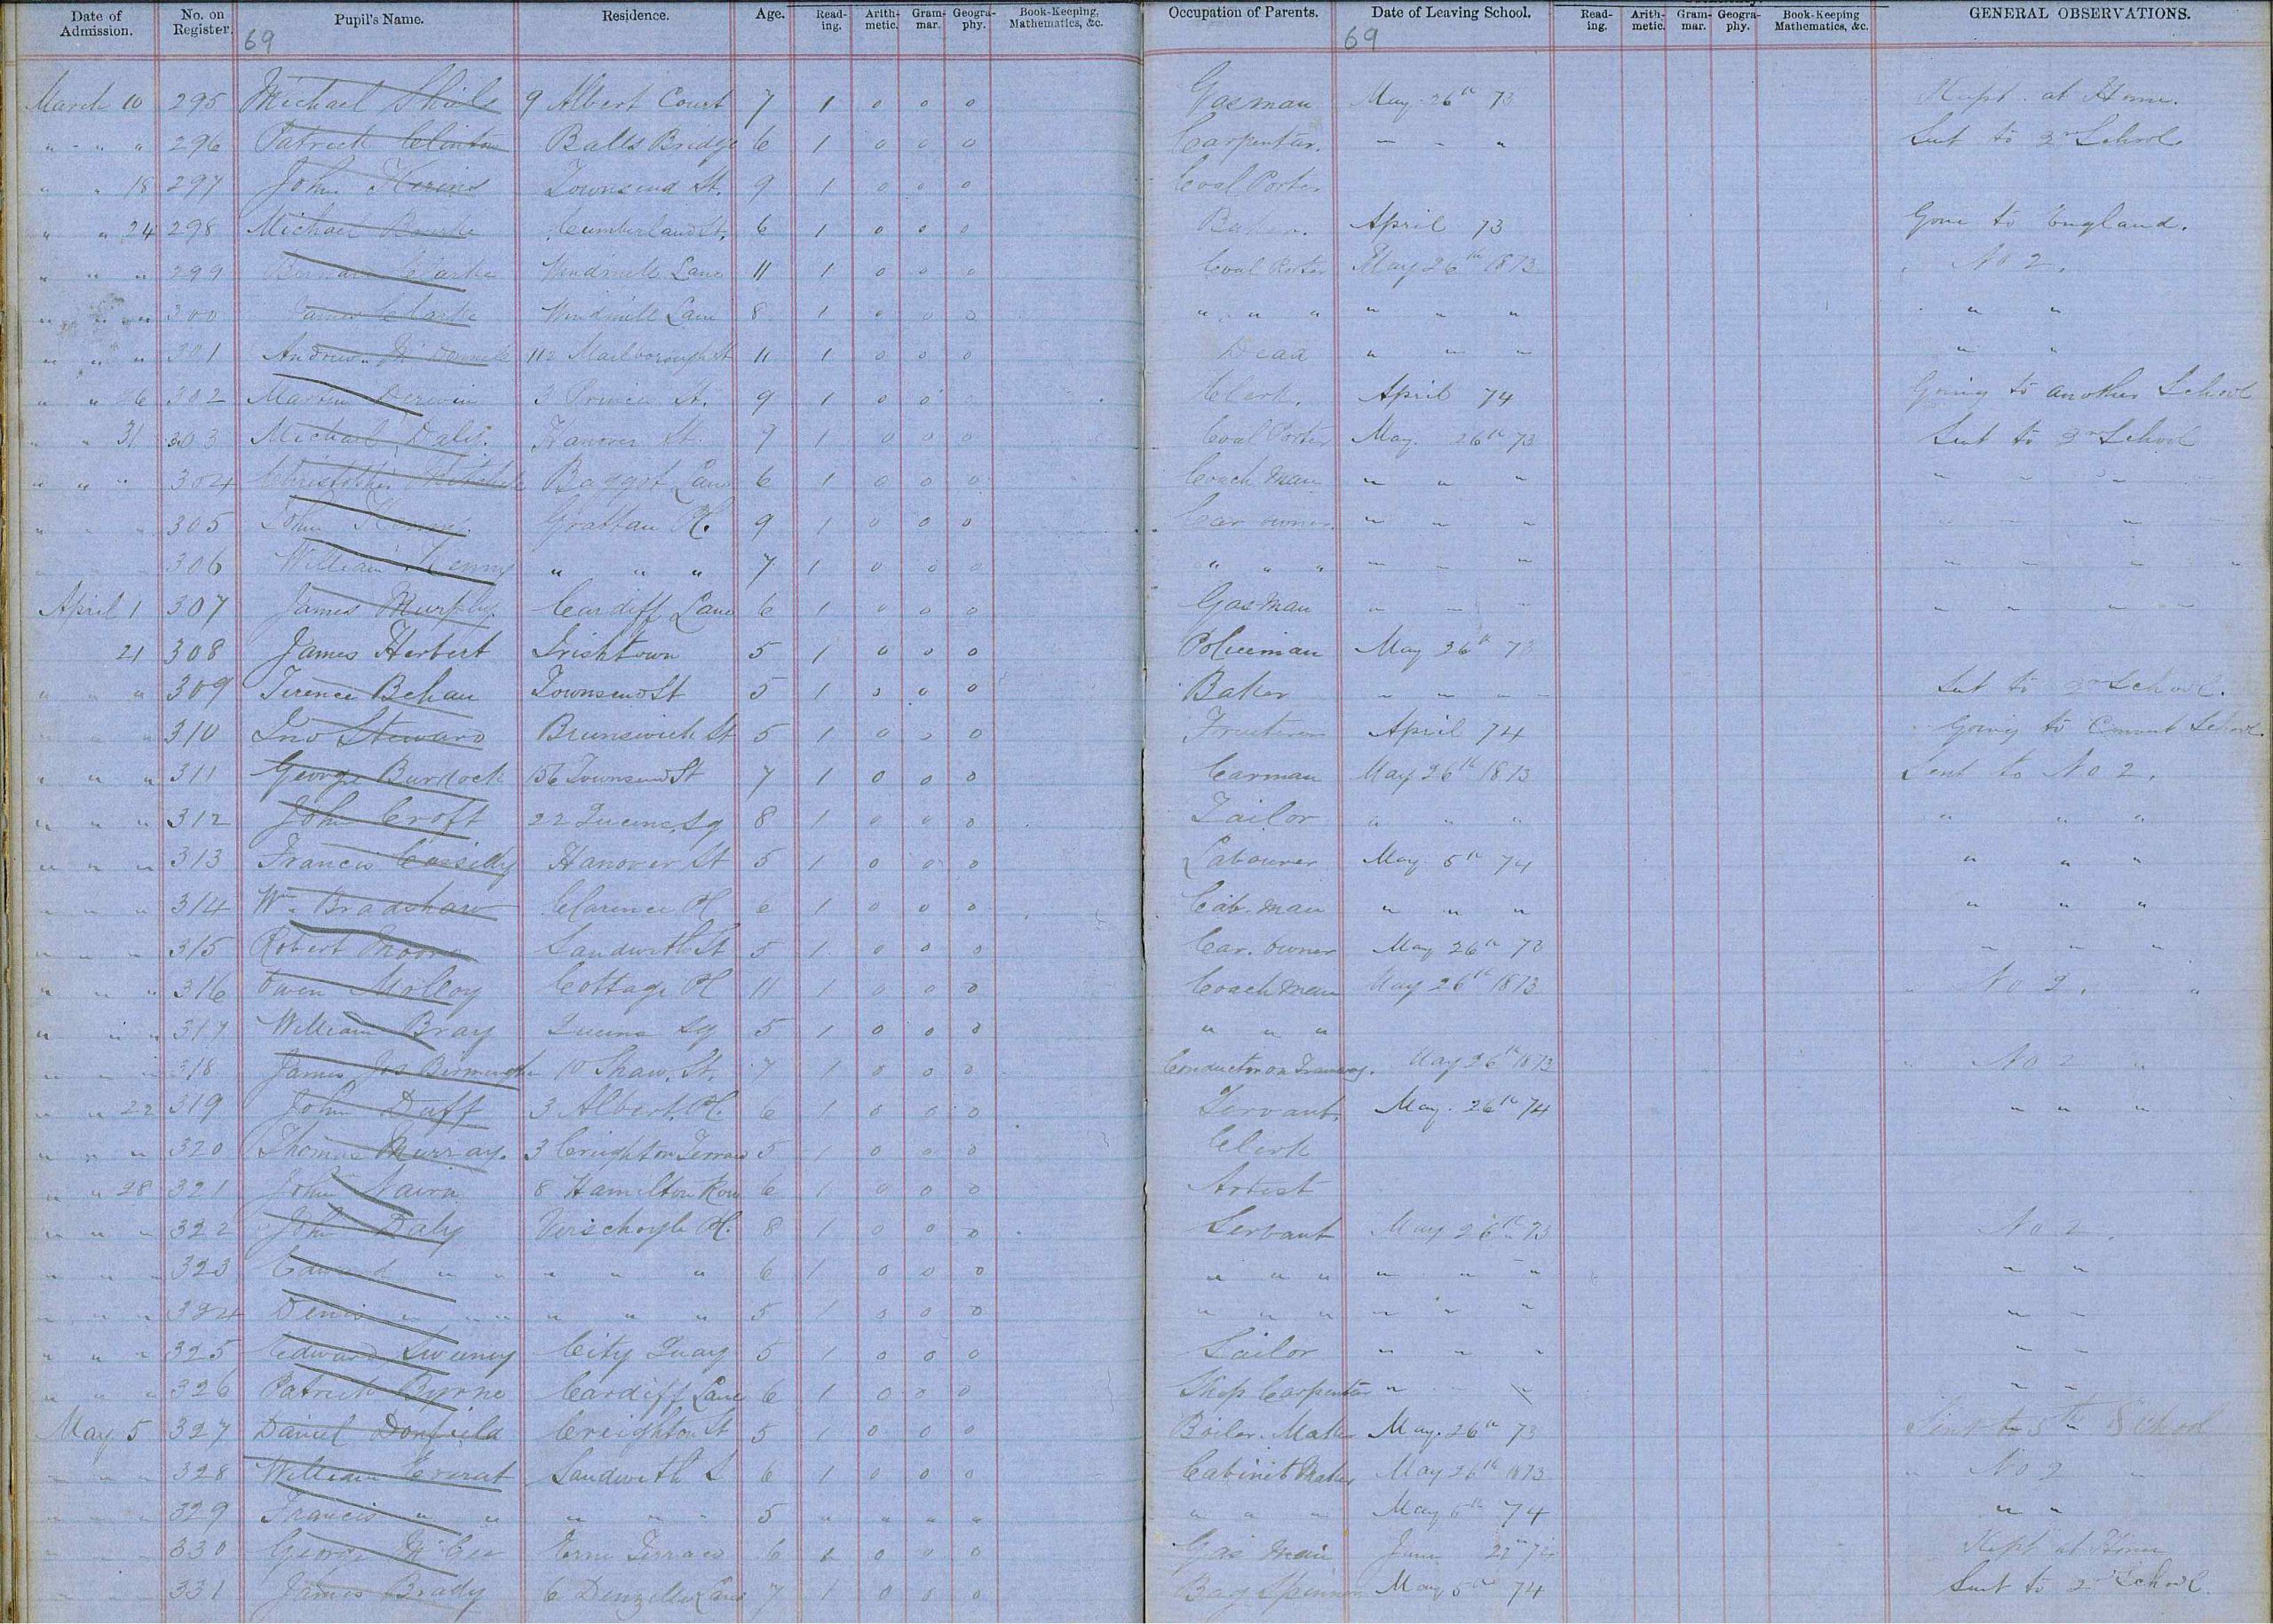 Date of Admission. No. on Register. Pupil's Name. Residence. Age. Read-ing. Arith-metic. Gram-mar. Geogra-phy. Book-Keeping, Mathematics, &c. Occupation of Parents. Date of Leaving School. Read-ing. Arith-metic. Gram-mar. Geogra-phy. Book-Keeping Mathematics, &c. GENERAL OBSERVATIONS.
69 69
March 10 295 Michael Shiels 9 Albert Court 7 1 0 0 0 Gasman May 26th 73 Kept at Home.
" - " " 296 Patrick Clinton Balls Bridge 6 1 0 0 0 Carpenter. " " " Sent to 2nd School.
" " 18 297 John Townsend St. 9 1 0 0 0 Coal Porter
" " 24 298 Michael Bourke Cumberland St. 6 1 0 0 0 Baker. April 73 Gone to England.
" " " 299 Bernard Clarke Windmill Lane 11 1 0 0 0 Coal Porter May 26th 1873 " No 2.
" " " 300 James Clarke Windmill Lane 8 1 0 0 0 " " " " " " " " "
" " " 301 Andrew 112 Marlborough St 11 1 0 0 0 Dead " " " " "
" " 26 302 Martin Derwin 3 Princes St. 9 1 0 0 Clerk. April 74 Going to another School
" " 31 303 Michael Daly. Hanover St. 9 1 0 0 0 Coal Porter May. 26th 73 Sent to 2nd School
" " " 304 Christopher Baggot Lane 6 1 0 0 0 Coach Man " " " " " " "
" " " 305 John Kenny. Grattan Pl. 9 1 0 0 0 Car owner. " " " " " " "
" " " 306 William Kenny " " " 7 1 0 0 0 " " " " " " " " " "
April 1 307 James Murphy. Cardiff Lane 6 1 0 0 0 Gas Man " " " " " " "
21 308 James Herbert Irishtown 5 1 0 0 0 Policeman May 26th 73
" " " 309 Terence Behan Townsend St 5 1 0 0 0 Baker " " " " Sent to 2nd School.
" " " 310 Jno Steward Brunswick St 5 1 0 0 0 April 74 Going to Convent School.
" " " 311 George Burdock 156 Townsend St 7 1 0 0 0 Carman May 26th 1873 Sent to No 2.
" " " 312 John Croft 22 Queens Sq 8 1 0 0 0 Tailor " " " " " "
" " " 313 Francis Cassidy Hanover St 5 1 0 0 0 Labourer May 5th 74 " " "
" " " 314 Wm. Bradshaw Clarence Pl 6 1 0 0 0 Cab. man " " " " " "
" " " 315 Robert Moore Sandwith St 5 1 0 0 0 Car. owner May 26th 73 " " "
" " " 316 Owen Molloy Cottage Pl 11 1 0 0 0 Coach man May 26th 1873 " No 2. "
" " " 317 William Bray Queens Sq 5 1 0 0 0 " " "
" " " 318 James Jos 10 Shaw. St. 7 1 0 0 0 Conductor on Tramway. May 26th 1873 " No 2 "
" " 22 319 John Duff 3 Albert. Pl. 6 1 0 0 0 Servant. May. 26th 74 " " "
" " " 320 Thomas Murray. 3 Creighton Terrace 5 1 0 0 0 Clerk
" " 28 321 John Nairn 8 Hamilton Row 6 1 0 0 0 Artist
" " " 322 John Daly Verschoyle Pl. 8 1 0 0 0 Servant May 26th 73 No 2.
" " " 323 Edward " " " " " 6 1 0 0 0 " " " " " " " "
" " " 324 Denis " " " " " " 5 1 0 0 0 " " " " " " " "
" " " 325 Edward Sweeney City Quay 5 1 0 0 0 Sailor " " " " "
" " " 326 Patrick Byrne Cardiff Lane 6 1 0 0 0 Ship Carpenter " " " " "
May 5 327 Daniel Creighton St 5 1 0 0 0 Boiler. Maker May. 26th 73 Sent to 5th School
" " " 328 William Sandwith S 6 1 0 0 0 Cabinet Maker May 26th 1873 " No 2 "
" " " 329 Francis " " " " " " 5 " " " " " " " May 5th 74 " "
" " " 330 George McGee Erne Terrace 6 1 0 0 0 Gas man June Kept at Home
331 James Brady 6 Denzille Lane 7 1 0 0 0 May 5th 74 Sent to 2nd School.